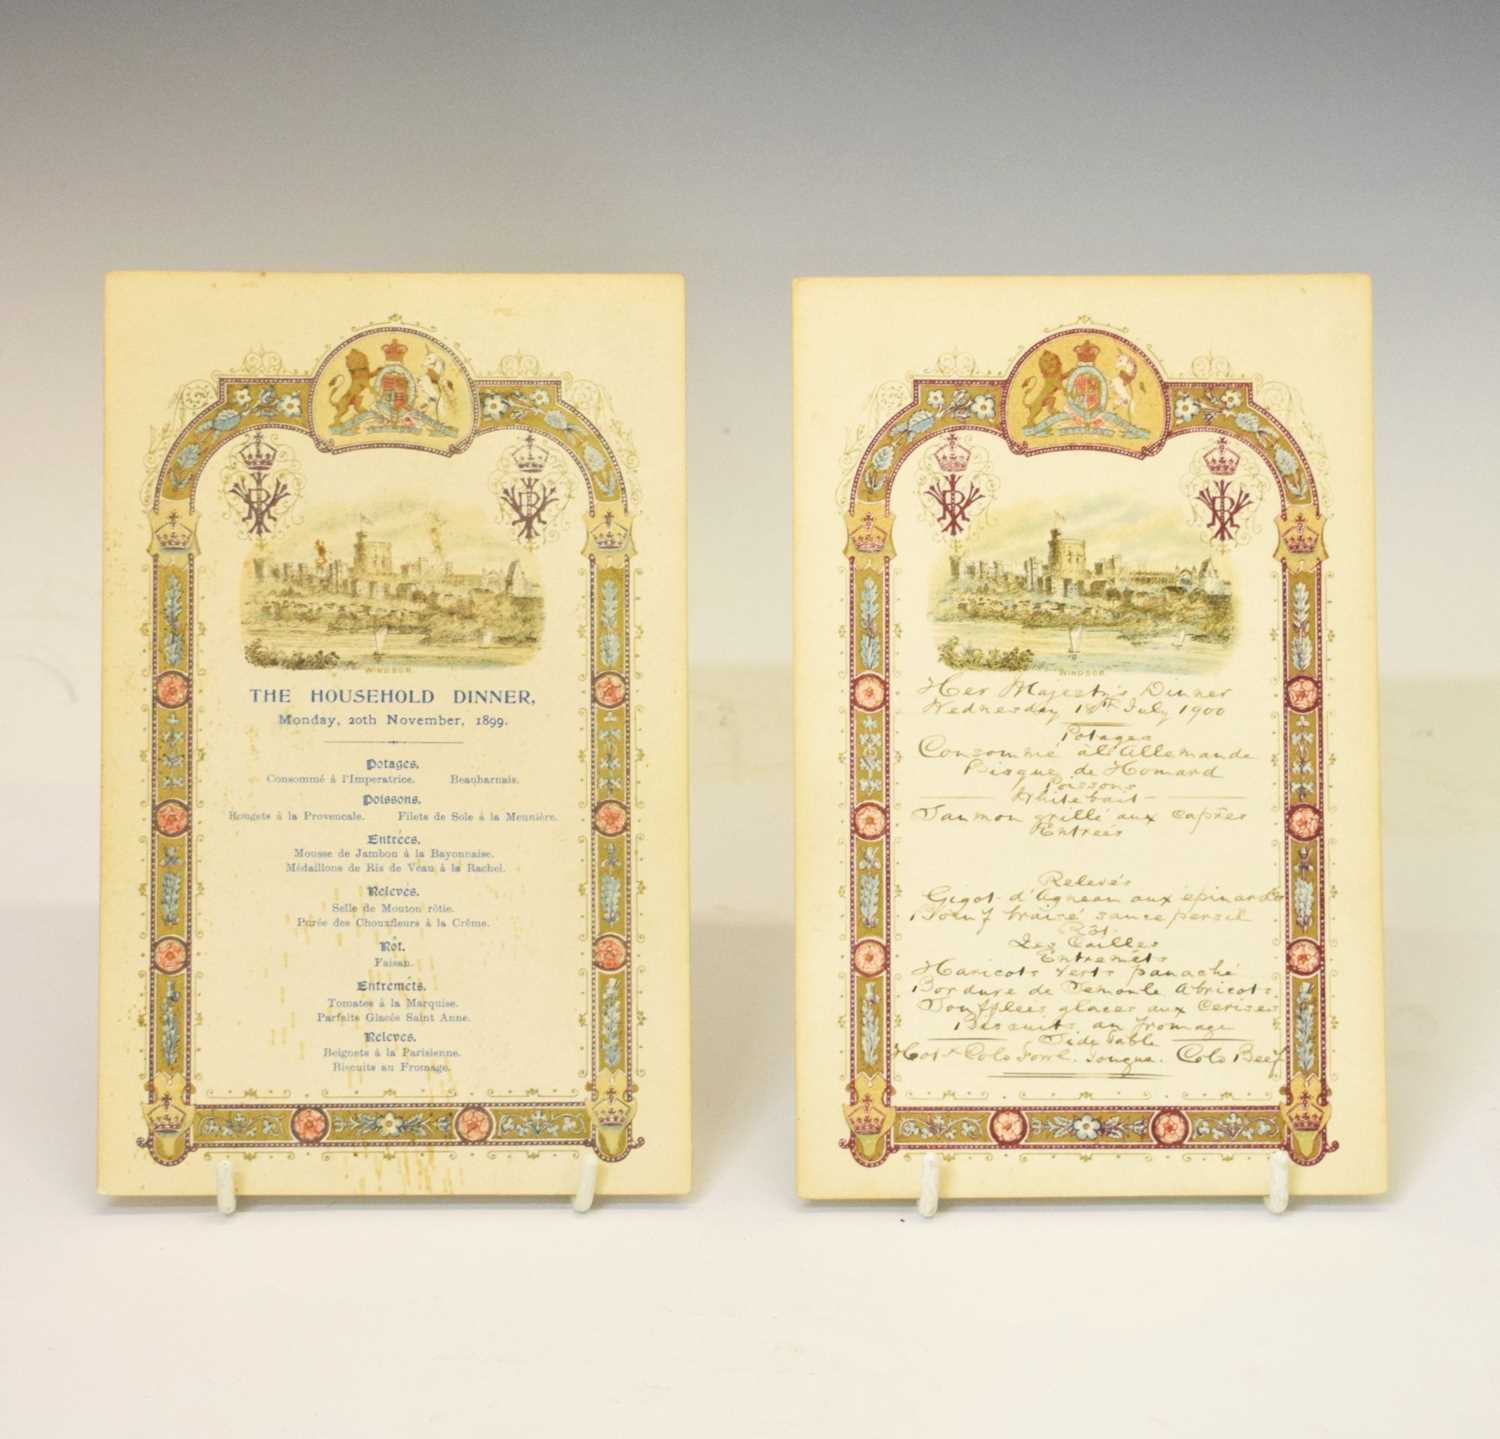 WINDSOR.
THE HOUSEHOLD DINNER,
Monday, 20th November, 1899.
Potages.
Consommé à l'Imperatrice. Beauharnais.
Poissons.
Rougets à la Provencale. Filets de Sole à la Meunière.
Entrées.
Mousse de Jambon à la Bayonnaise.
Médaillons de Ris de Veau à la Rachel.
Relevés.
Selle de Mouton rôtie.
Purée des Chouxfleurs à la Crême.
Rôt.
Faisan.
Entremêts.
Tomates à la Marquise.
Parfaits Glacés Saint Anne.
Relevés.
Beignets à la Parisienne.
Biscuits au Fromage.
WINDSOR.
Her Majesty's Dinner
Wednesday 18th July 1900
Potages
Consommé à l'Allemande
Bisque de Homard
Poissons
Whitebait
Saumon grillé aux capres
Entrées
Relevés
Gigot d'Agneau aux épinards
Boeuf braisé sauce persil
Rôt
Les Cailles
Entremêts
Haricots verts panaché
Bordure de Semoule Abricots
Soufflées glacés aux Cerises
Biscuits au fromage
Side table
Hot & Cold Fowl. Tongue. Cold Beef